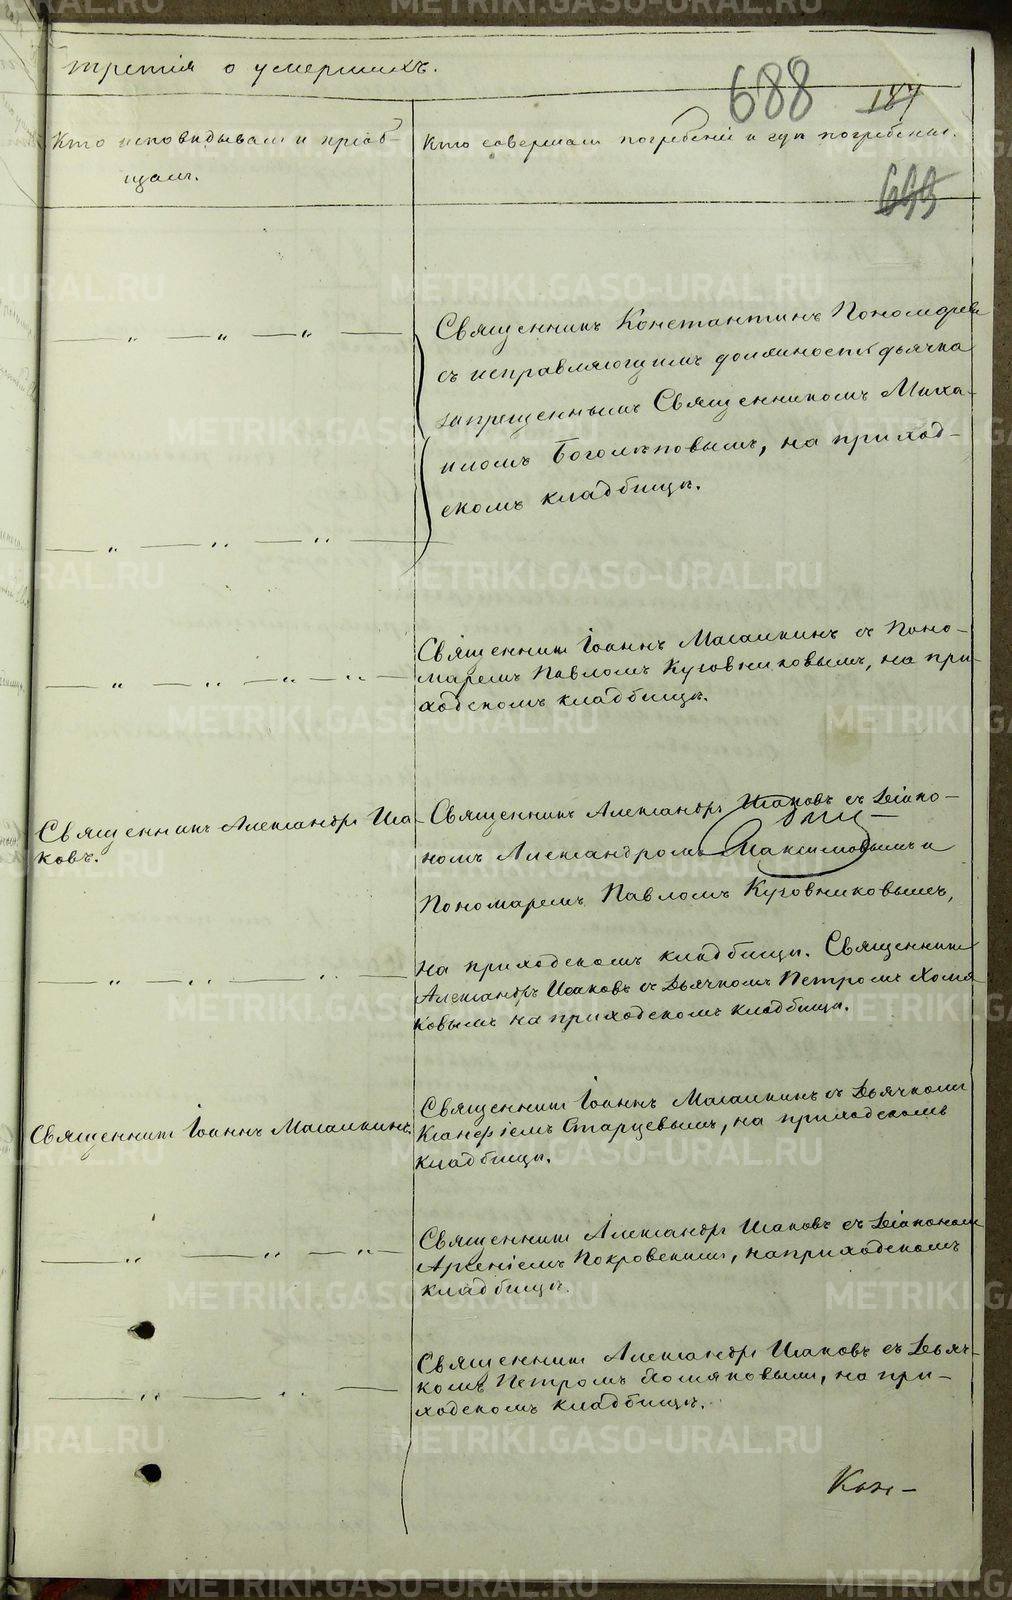 третія о умершихъ.
688 187
Кто исповѣдывалъ и пріоб-
щалъ.
Кто совершалъ погребеніе и гдѣ погребены.
699
Священникъ Константинъ Пономаревъ
съ исправляющимъ должность дьячка
запрещеннымъ Священникомъ Миха-
иломъ Боголѣповымъ, на приход-
скомъ кладбищѣ.
Священникъ Іоаннъ Масалкинъ съ Поно-
маремъ Павломъ Куговниковымъ, на при-
ходскомъ кладбищѣ.
Священникъ Александръ Иса-
ковъ.
Священникъ Александръ Исаковъ съ Діако-
номъ Александромъ Максимовымъ и
Пономаремъ Павломъ Куговниковымъ,
на приходскомъ кладбищѣ. Священникъ
Александръ Исаковъ съ Дьячкомъ Петромъ Хомя-
ковымъ на приходскомъ кладбищѣ.
Священникъ Іоаннъ Масалкинъ.
Священникъ Іоаннъ Масалкинъ съ Дьячкомъ
Старцевымъ, на приходскомъ
кладбищѣ.
Священникъ Александръ Исаковъ съ Діакономъ
Арсеніемъ Покровскимъ, на приходскомъ
кладбищѣ.
Священникъ Александръ Исаковъ съ Дьяч-
комъ Петромъ Хомяковымъ, на при-
ходскомъ кладбищѣ.
METRIKI.GASO-URAL.RU